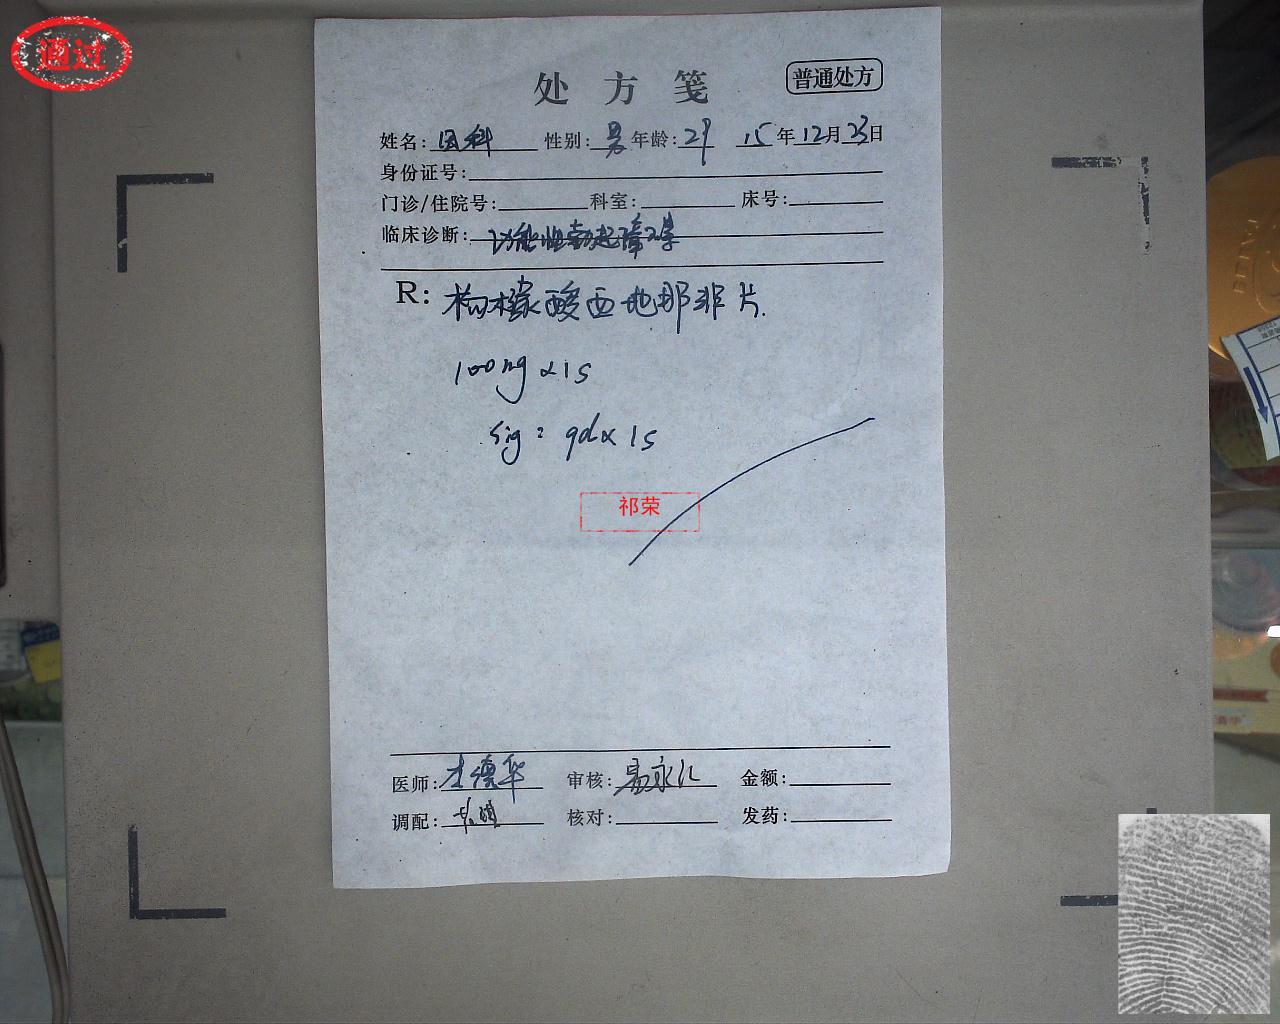 通过
处方笺
普通处方
姓名: 性别: 男 年龄: 29 15年12月23日
身份证号:
门诊/住院号: 科室: 床号:
临床诊断: 功能性勃起障碍
R: 枸橼酸西地那非片.
100mg×1s
Sig: qd×1s
祁荣
医师: 李德华 审核: 易永仁 金额:
调配: 核对: 发药: